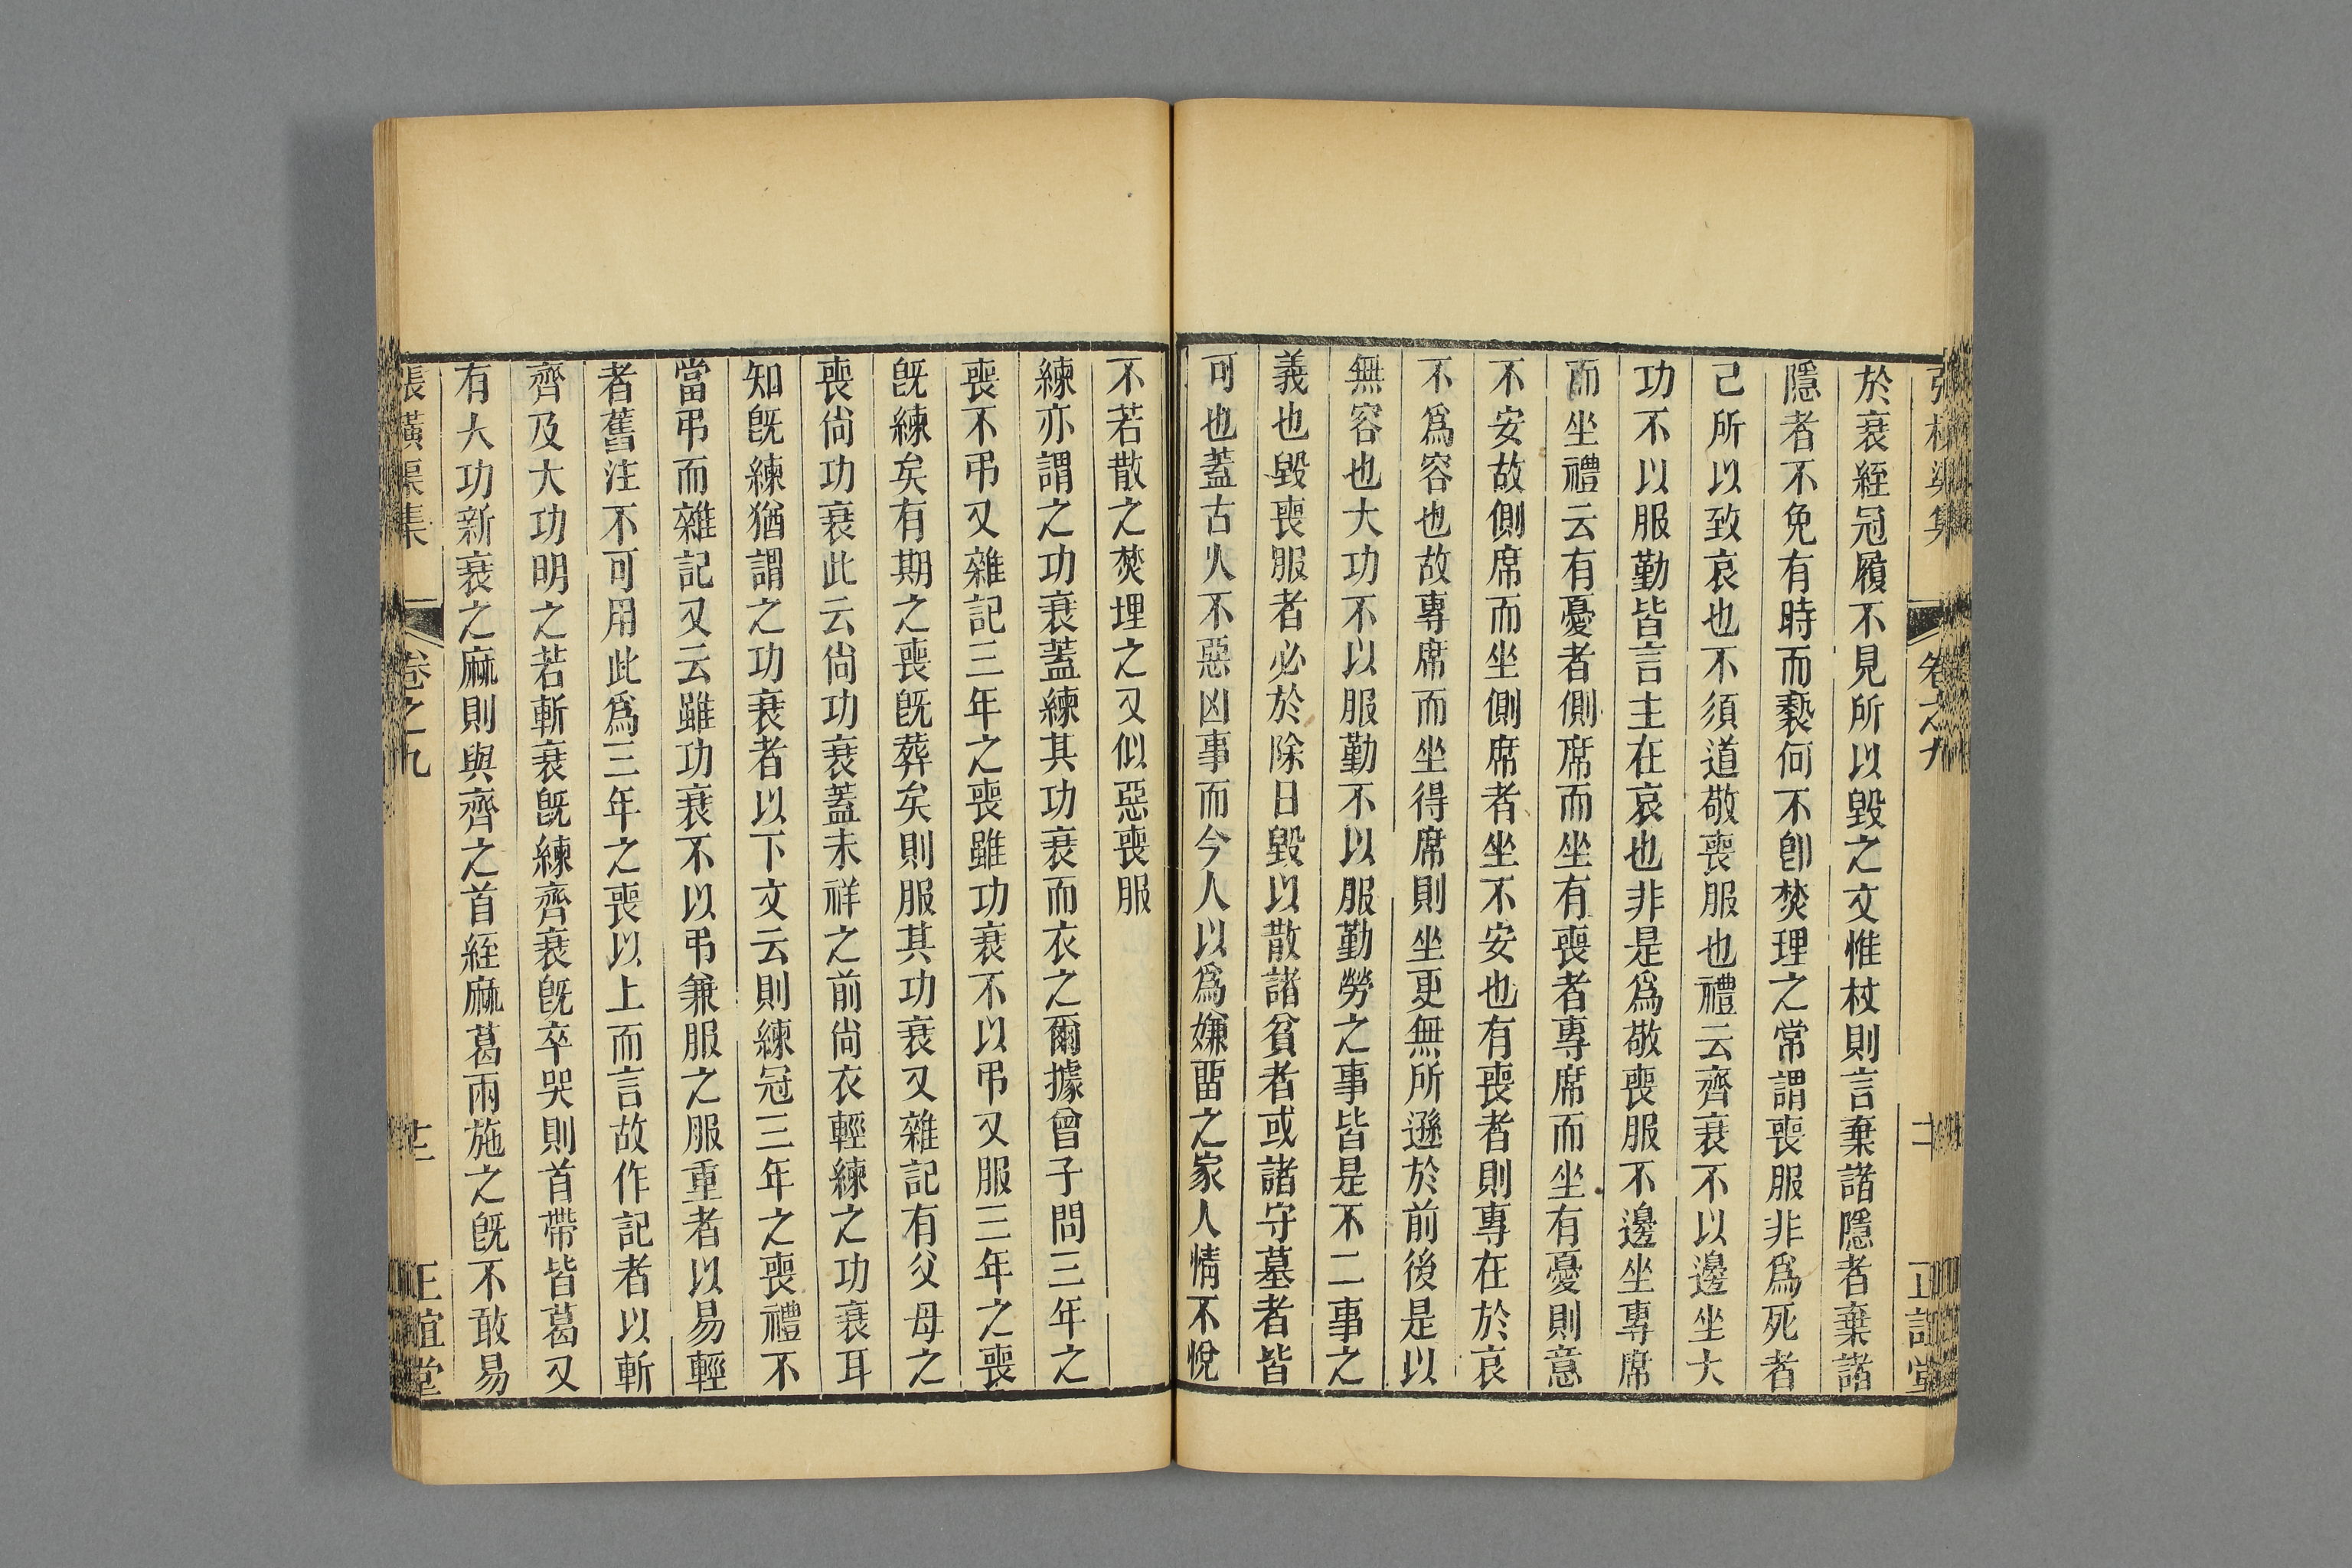 於衰絰冠履不見所以毀之文惟杖則言棄諸隱者棄諸
隱者不免有時而褻何不卽焚理之常謂喪服非爲死者
己所以致哀也不須道敬喪服也禮云齊衰不以邊坐大
功不以服勤皆言主在哀也非是爲敬喪服不邊坐專席
而坐禮云有憂者側席而坐有喪者專席而坐有憂則意
不安故側席而坐側席者坐不安也有喪者則專在於哀
不爲容也故專席而坐得席則坐更無所遜於前後是以
無容也大功不以服勤不以服勤勞之事皆是不二事之
義也毀喪服者必於除日毀以散諸貧者或諸守墓者皆
可也蓋古人不惡凶事而今人以爲嫌畱之家人情不悅
不若散之焚埋之又似惡喪服
練亦謂之功衰蓋練其功衰而衣之爾據曾子問三年之
喪不弔又雜記三年之喪雖功衰不以弔又服三年之喪
旣練矣有期之喪旣葬矣則服其功衰又雜記有父母之
喪尙功衰此云尙功衰蓋未祥之前尙衣輕練之功衰耳
知旣練猶謂之功衰者以下文云則練冠三年之喪禮不
當弔而雜記又云雖功衰不以弔兼服之服重者以易輕
者舊注不可用此爲三年之喪以上而言故作記者以斬
齊及大功明之若斬衰旣練齊衰旣卒哭則首帶皆葛又
有大功新衰之麻則與齊之首絰麻葛兩施之旣不敢易
張橫渠集
卷之九
正誼堂